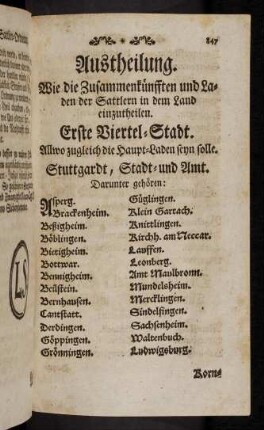 247
Austheilung.
Wie die Zusammenkünfften und La-
den der Sattlern in dem Land
einzutheilen.
Erste Viertel-Stadt.
Allwo zugleich die Haupt-Laden seyn solle.
Stuttgardt, Stadt- und Amt.
Darunter gehören:
Asperg.
Brackenheim.
Beßigheim.
Böblingen.
Bietigheim.
Bottwar.
Bennigheim.
Beilstein.
Bernhausen.
Cantstatt.
Derdingen.
Göppingen.
Grönningen.
Güglingen.
Klein Gartach.
Knittlingen.
Kirchh. am Neccar.
Lauffen.
Leonberg.
Amt Maulbronn.
Mundelsheim.
Mercklingen.
Sindelfingen.
Sachsenheim.
Waltenbuch.
Ludwigsburg.
Korn-